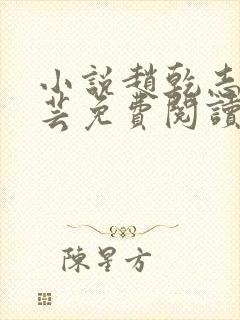 小說趙乾志
芸免費閱讀
陳星方